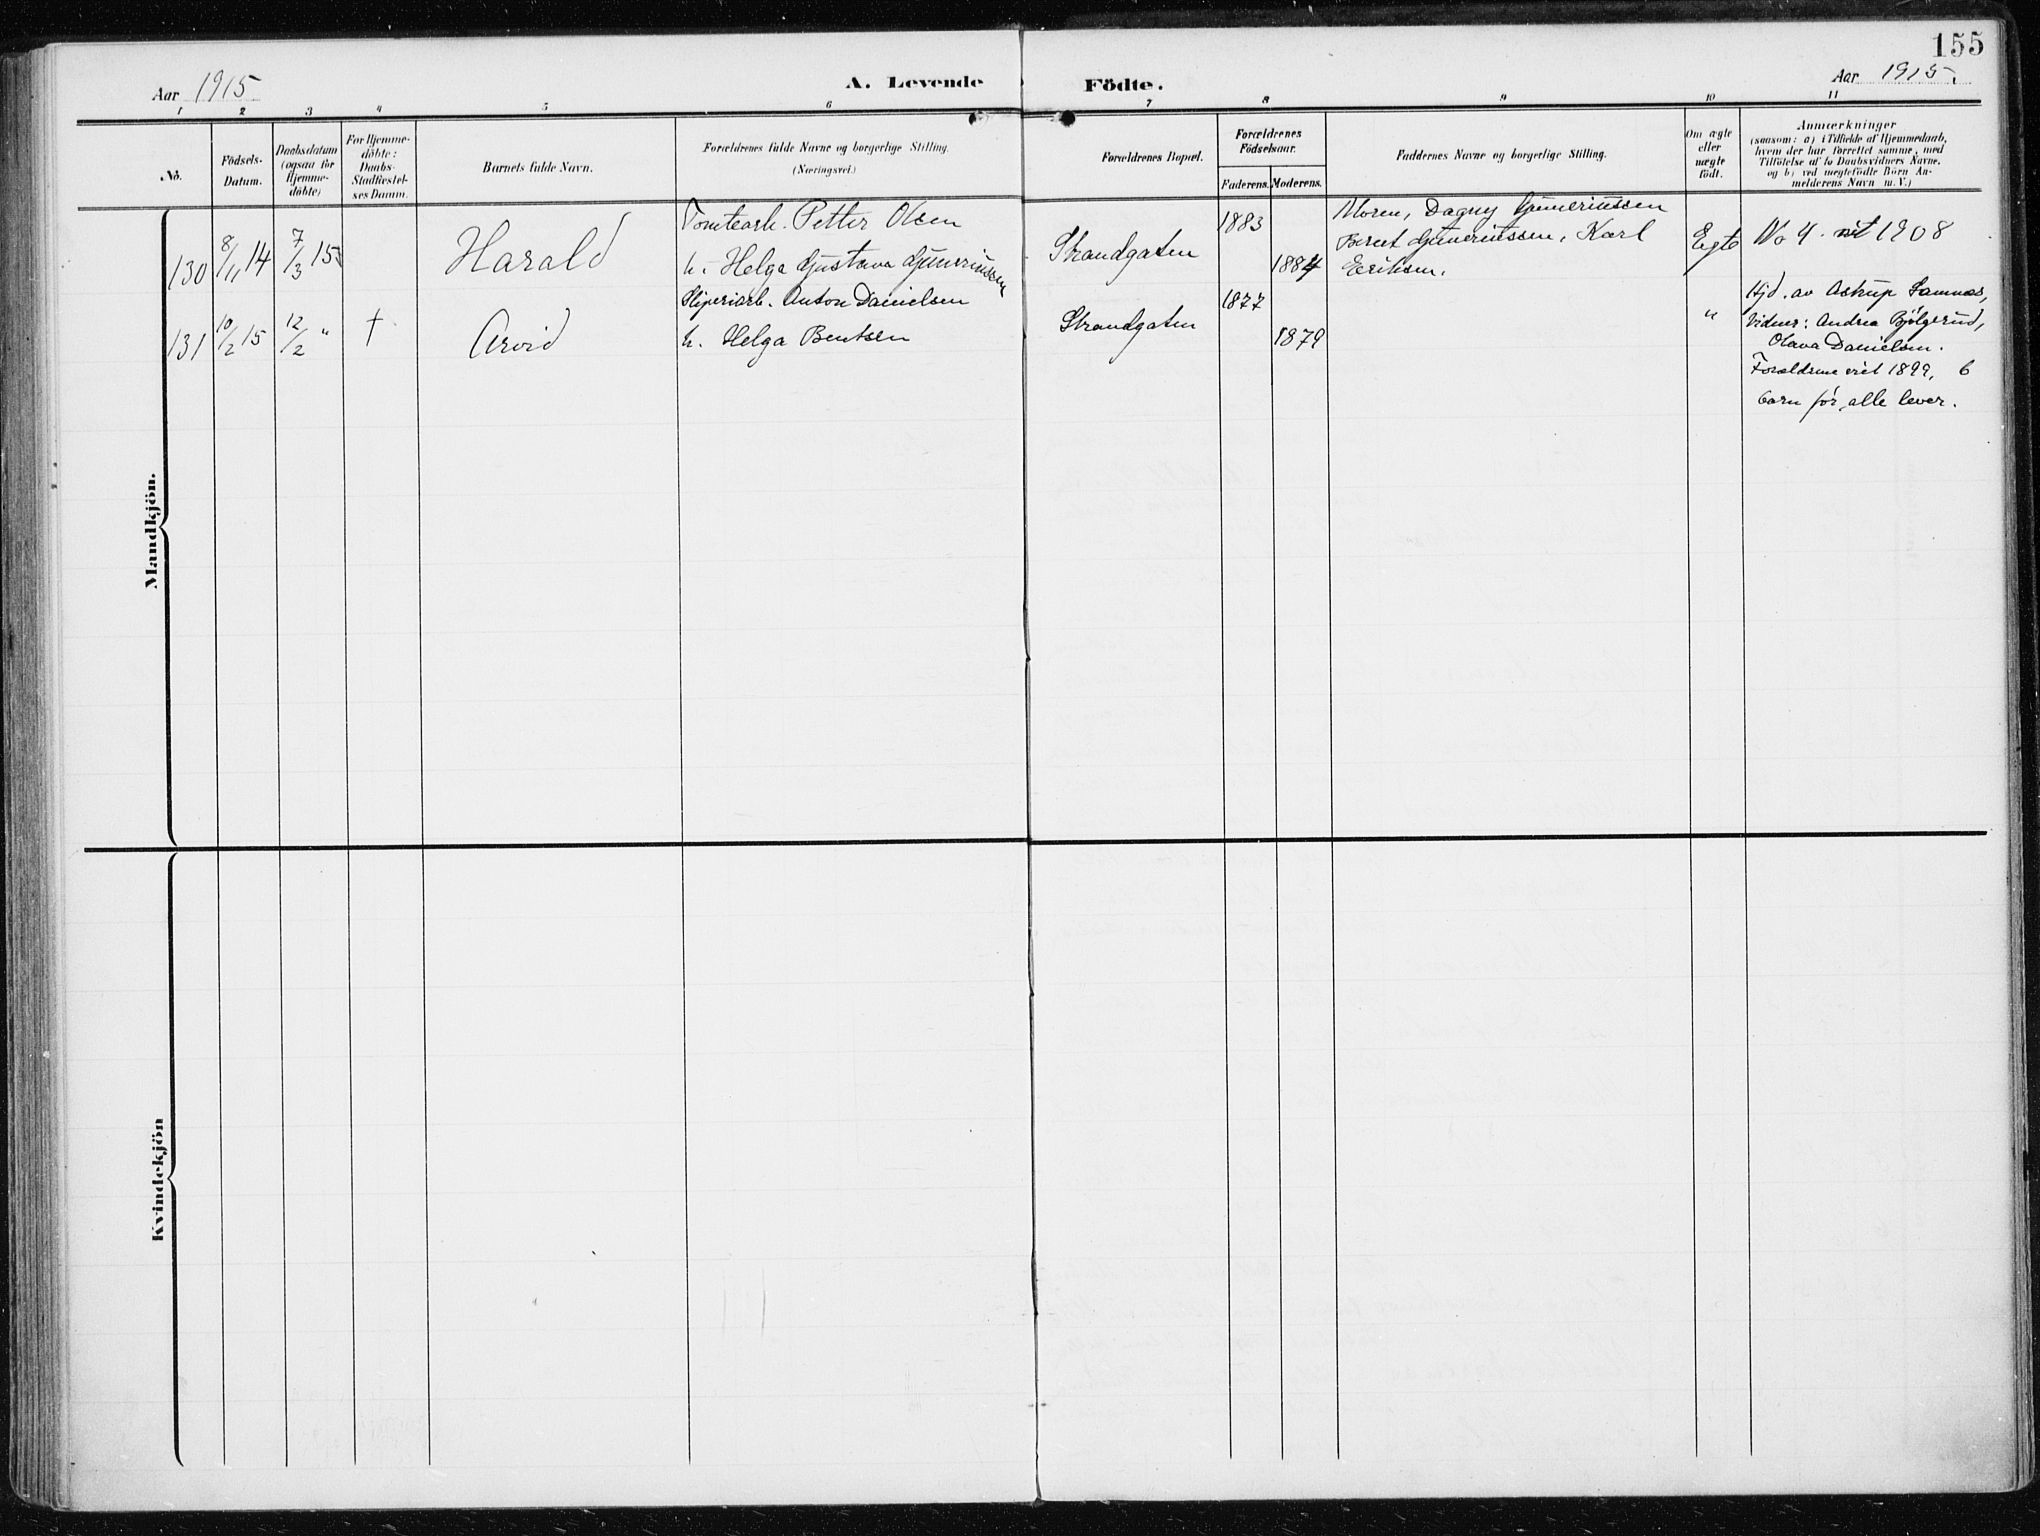 155
Aar 1915
A. Levende Födte.
Aar 1915.
1 2 3 4 5 6 7 8 9 10 11
No.
Födsels-
Datum.
Daabsdatum
(ogsaa for
Hjemme-
döbte)
For Hjemme-
döbte:
Daabs-
Stadfæstel-
ses Datum.
Barnets fulde Navn.
Forældrenes fulde Navne og borgerlige Stilling.
(Næringsvei.)
Forældrenes Bopæl.
Forældrenes
Födselsaar.
Faderens. Moderens.
Faddernes Navne og borgerlige Stilling.
Om ægte
eller
uægte
födt.
Anmærkninger
(saasom: a) i Tilfælde af Hjemmedaab,
hvem der har forrettet samme, med
Tilföielse af to Daabsvidners Navne.
og b) ved uægtefödte Börn An-
melderens Navn m. V.)
Mandkjön.
130 8/11 14 7/3 15 Harald
Tomtearb. Petter Olsen
h. Helga Gustava Guneriussen
Strandgaten 1883 1884
Moren, Dagny Guneriussen
Bernt Guneriussen, Karl
Eriksen.
Egte
No 4. 1908
131 10/2 15 12/2 " † Arvid
Sliperiarb. Anton Danielsen
h. Helga Bentsen
Strandgaten 1877 1879
"
Hjd. av Astrup Samnøs,
Vidner: Andrea Bjølgerud,
Olava Danielsen.
Forældrene viet 1899, 6
barn før, alle lever.
Kvindekjön